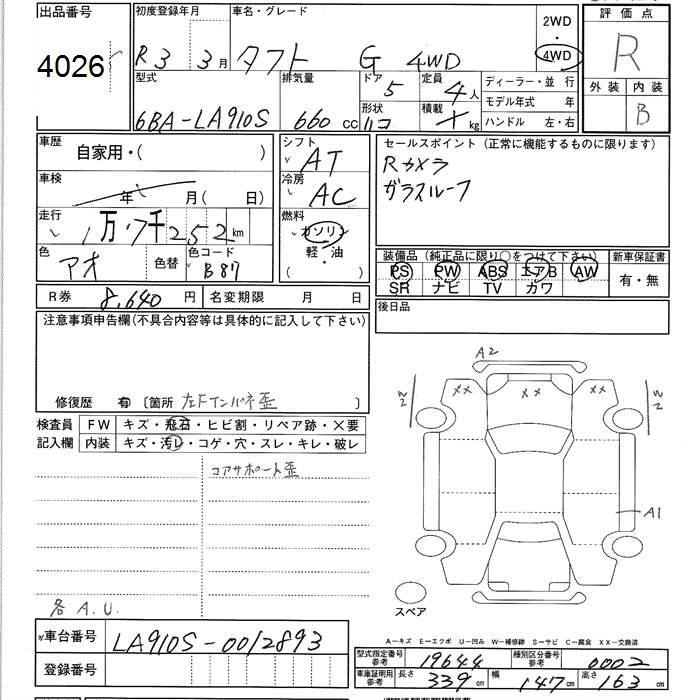 出品番号 初度登録年月 車名・グレード 2WD 評価点
4026 R3 3月 タフト G 4WD ・ 4WD R
型式 排気量 ドア 5 定員 4人 ディーラー・並行 外装 内装
6BA-LA910S 660cc 形状 ハコ 積載 kg モデル年式 年 B
ハンドル 左・右
車歴 自家用・( ) シフト AT セールスポイント(正常に機能するものに限ります)
車検 年 月(日) 冷房 AC Rカメラ
ガラスルーフ
走行 1万7千252km 燃料 ガソリン
軽・油
色 アオ 色替 色コード B87 装備品(純正品に限り○をつけて下さい) 新車保証書
PS PW ABS エアB AW 有・無
SR ナビ TV カワ
R券 8,640円 名変期限 月 日 後日品
注意事項申告欄(不具合内容等は具体的に記入して下さい)
修復歴 有 〔箇所 左Fインパネ歪 〕
検査員 FW キズ・飛石・ヒビ割・リペア跡・×要
記入欄 内装 キズ・汚レ・コゲ・穴・スレ・キレ・破レ
コアサポート歪
各A.U.
A2
W2 XX XX XX W2
A1
スペア
A-キズ E-エクボ U-凹み W-補修跡 S-サビ C-腐食 XX-交換済
車台番号 LA910S-0012893
登録番号
型式指定番号 参考 19644 種別区分番号 参考 0002
車庫証明用 参考 長さ 339cm 幅 147cm 高さ 163cm